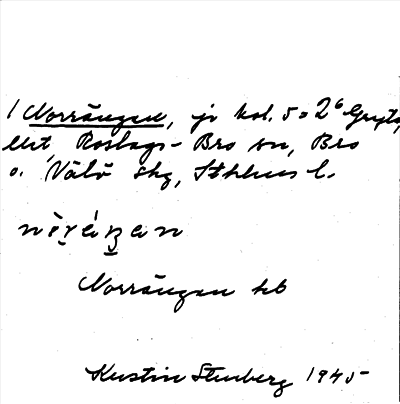 1 Norrängen, jo kol. 5 o 2⁶ Gryta,
Roslags-Bro sn, Bro
o. Vätö skg, Sthlms l.
Norrängen
Kerstin Stenberg 1945